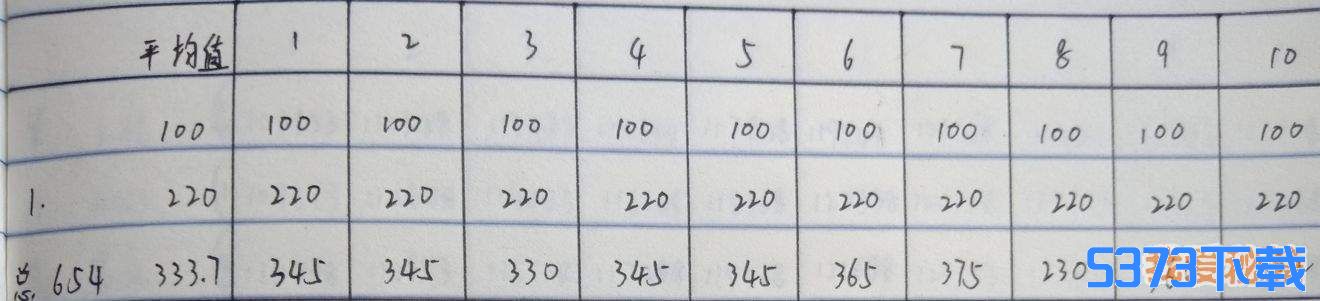 平均值 1 2 3 4 5 6 7 8 9 10
100 100 100 100 100 100 100 100 100 100 100
1. 220 220 220 220 220 220 220 220 220 220 220
654 333.7 345 345 330 345 345 365 375 230
5373下载